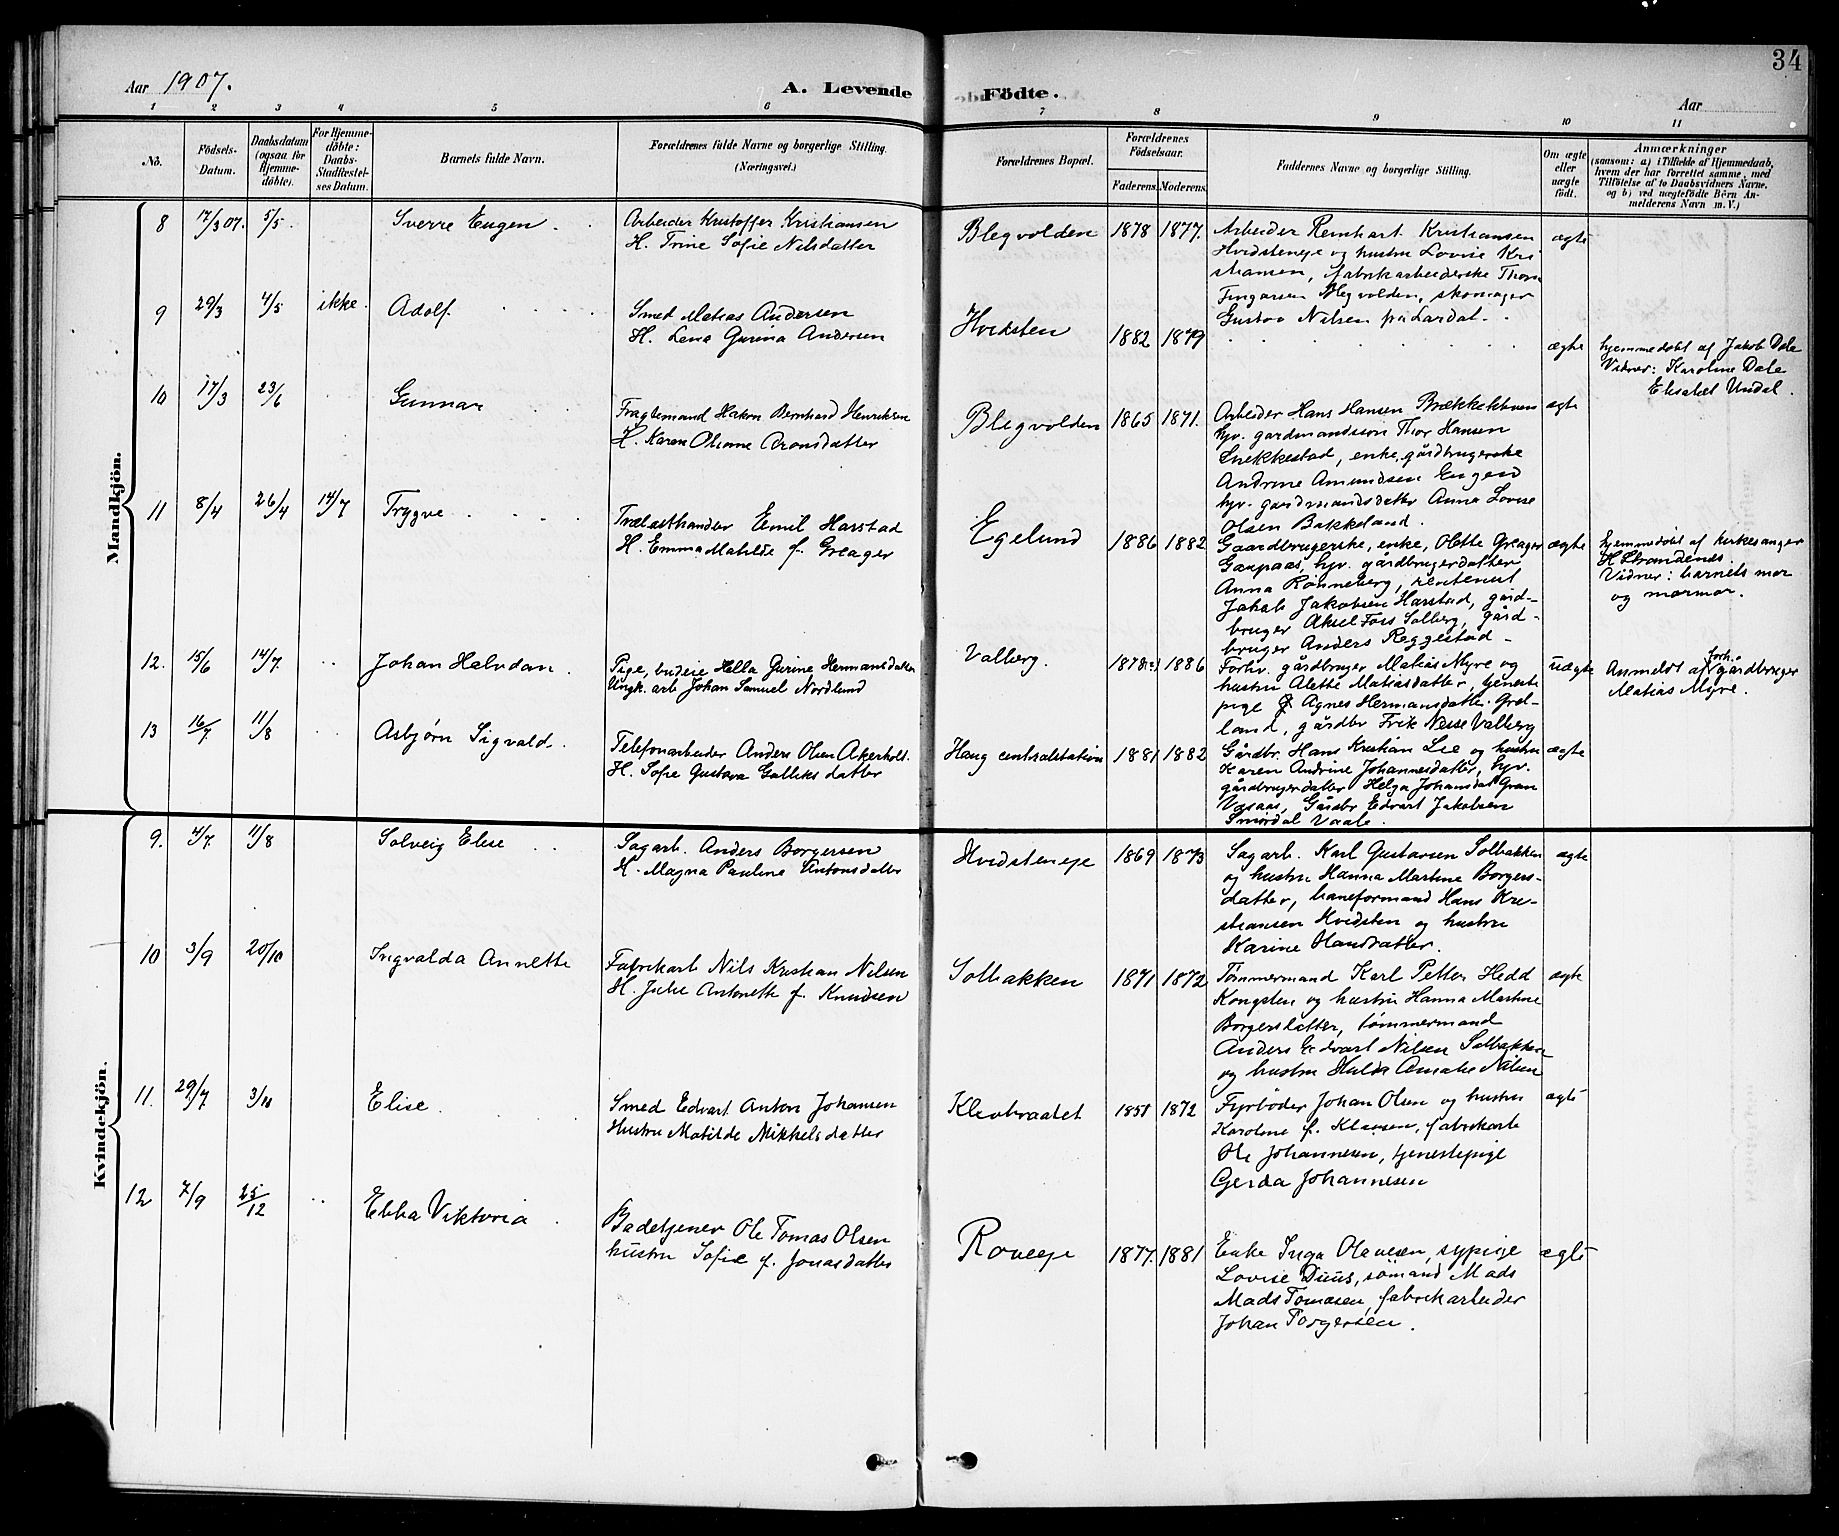 34
Aar 1907.
A. Levende Födte.
Aar
1 2 3 4 5 6 7 8 9 10 11
No.
Födsels-Datum.
Daabsdatum (ogsaa for Hjemme-döbte).
For Hjemme-döbte: Daabs-Stadfæstel-ses Datum.
Barnets fulde Navn.
Forældrenes fulde Navne og borgerlige Stilling.
(Næringsvei.)
Forældrenes Bopæl.
Forældrenes Födselsaar.
Faderens. Moderens.
Faddernes Navne og borgerlige Stilling.
Om ægte eller uægte födt.
Anmærkninger
(saasom: a) i Tilfælde af Hjemmedaab,
hvem der har forrettet samme, med
Tilföielse af to Daabsvidners Navne,
og b) ved uægtefödte Börn An-
melderens Navn m. V.)
Mandkjön.
8 17/3 07. 5/5 Sverre Eugen
Arbeider Kristoffer Kristiansen
H. Trine Sofie Nilsdatter
Blegvolden 1878 1877.
Arbeider Reinhart Kristiansen
Hvidsteneje og hustru Lovise Kri
stiansen, fabrikarbeiderske Thora
Blegvolden, skomager
Gustav Nilsen fra Lardal.
ægte
9 29/3 4/5 ikke. Adolf
Smed Matias Andersen
H. Lena Gurina Andersen
Hvidsten 1882 1879
ægte
hjemmedøbt af Jakob Dale
Vidner: Karoline Dale
Elisabet Undal.
10 17/3 23/6 Gunnar
Fragtemand Hakon Bernhard Henriksen
H. Karen Oliane Aronsdatter
Blegvolden 1865 1871.
Arbeider Hans Hansen
hjv. gardmandssøn Thor Hansen
Snekkestad, enke, gårdbrugerske
Andrine Amundsen Engen
hjv. gardmandsdatter Anna Lovise
Olsen Bakkeland.
ægte
11 8/4 26/4 14/7 Trygve
Trælasthandler Emil Harstad
H. Emma Matilde f. Greager
Egelund 1886 1882
Gaardbrugerske, enke, Olette Greager
Gaupaas, hjv. gårdbrugerdatter
Anna Rønneberg, rentenist
Jakob Jakobsen Harstad, gård-
bruger Aksel Fors Solberg, gård-
bruger Anders Reggestad
ægte
hjemmedøbt af kirkesanger
H Strømdenes.
Vidner: barnets mor
og mormor.
12. 15/6 14/7 Johan Halvdan
Pige, budeie Hella Gurine Hermansdatter
Ungk. arb Johan Samuel Nordlund
Valberg. 1878 1886
Forhv. gårdbruger Matias Myre og
hustru Alette Matiasdatter, tjeneste
pige Agnes Hermansdatter Grøt-
land, gårdbr Frik Nesse Valberg
uægte
Anmeldt af forh. gårdbruger
Matias Myre.
13 16/7 11/8 Asbjørn Sigvald
Telefonarbeider Anders Olsen Akerholt.
H. Sofie Gustava Gulliksdatter
Haug centralstation 1881 1882
Gårdbr. Hans Kristian Lie og hustru
Karen Andrine Johannesdatter, hjv.
gårdbrugerdatter Helga Johansdat Gran
Vaaas, Gårdbr Edvart Jakobsen
Smørdal Vaale.
ægte
Kvindekjön.
9. 4/7 11/8 Solveig Elise
Sagarb. Anders Borgersen
H. Magna Pauline Antonsdatter
Hvidsteneje 1869 1873
Sagarb. Karl Gustavsen Solbakken
og hustru Hanna Martine Borgers-
datter, baneformand Hans Kri-
stiansen Hvidsten og hustru
Karine Hansdatter.
ægte
10 3/9 20/10 Ingvalda Annette
Fabrikarb Nils Kristian Nilsen
H. Julie Antonette f. Knudsen
Solbakken 1871 1872
Tømmermand Karl Petter Hedd
Kongsten og hustru Hanna Martine
Borgersdatter, tømmermand
Anders Edvart Nilsen Solbakken
og hustru Hulda Amalie Nilsen
ægte
11. 29/7 3/11 Elise
Smed Edvart Anton Johansen
Hustru Matilde Mikkelsdatter
Klevbraatet 1851 1872
Fyrbøder Johan Olsen og hustru
Karoline f. Klausen, fabrikarb
Ole Johannesen, tjenestepige
Gerda Johannesen
ægte
12 7/9 25/12 Ebba Viktoria
Badetjener Ole Tomas Olsen
hustru Sofie f. Jonasdatter
Roveeje 1877. 1881
Enke Inga Olavesen, sypige
Lovise Duus, sømand Mads
Mads Tomasen, fabrikarbeider
Johan Torgersen.
ægte